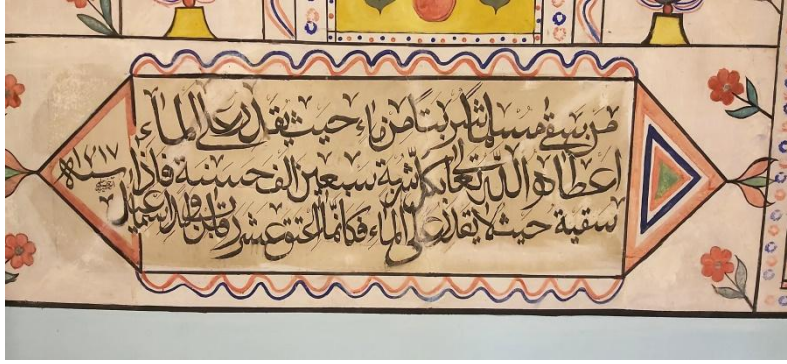 من سقى مسلما شربتاً من ماء حيث يقدر على الماء
اعطاه الله تعالى بكل شربة سبعين الف حسنة فاذا
سقية حيث لا يقدر على الماء فكانما اعتق عشر ولد اسماعيل
سنة ١٢١٧